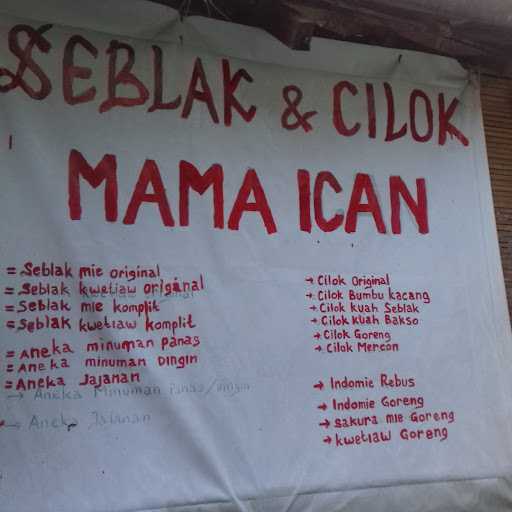 SEBLAK & CILOK
MAMA ICAN
= Seblak mie original
= Seblak kwetiaw original
= Seblak mie komplit
= Seblak kwetiaw komplit
= Aneka minuman panas
= Aneka minuman dingin
= Aneka Jajanan
→ Aneka Minuman Panas/dingin
→ Aneka Jajanan
→ Cilok Original
→ Cilok Bumbu kacang
→ Cilok kuah Seblak
→ Cilok kuah Bakso
→ Cilok Goreng
→ Cilok Mercon
→ Indomie Rebus
→ Indomie Goreng
→ sakura mie Goreng
→ kwetiaw Goreng